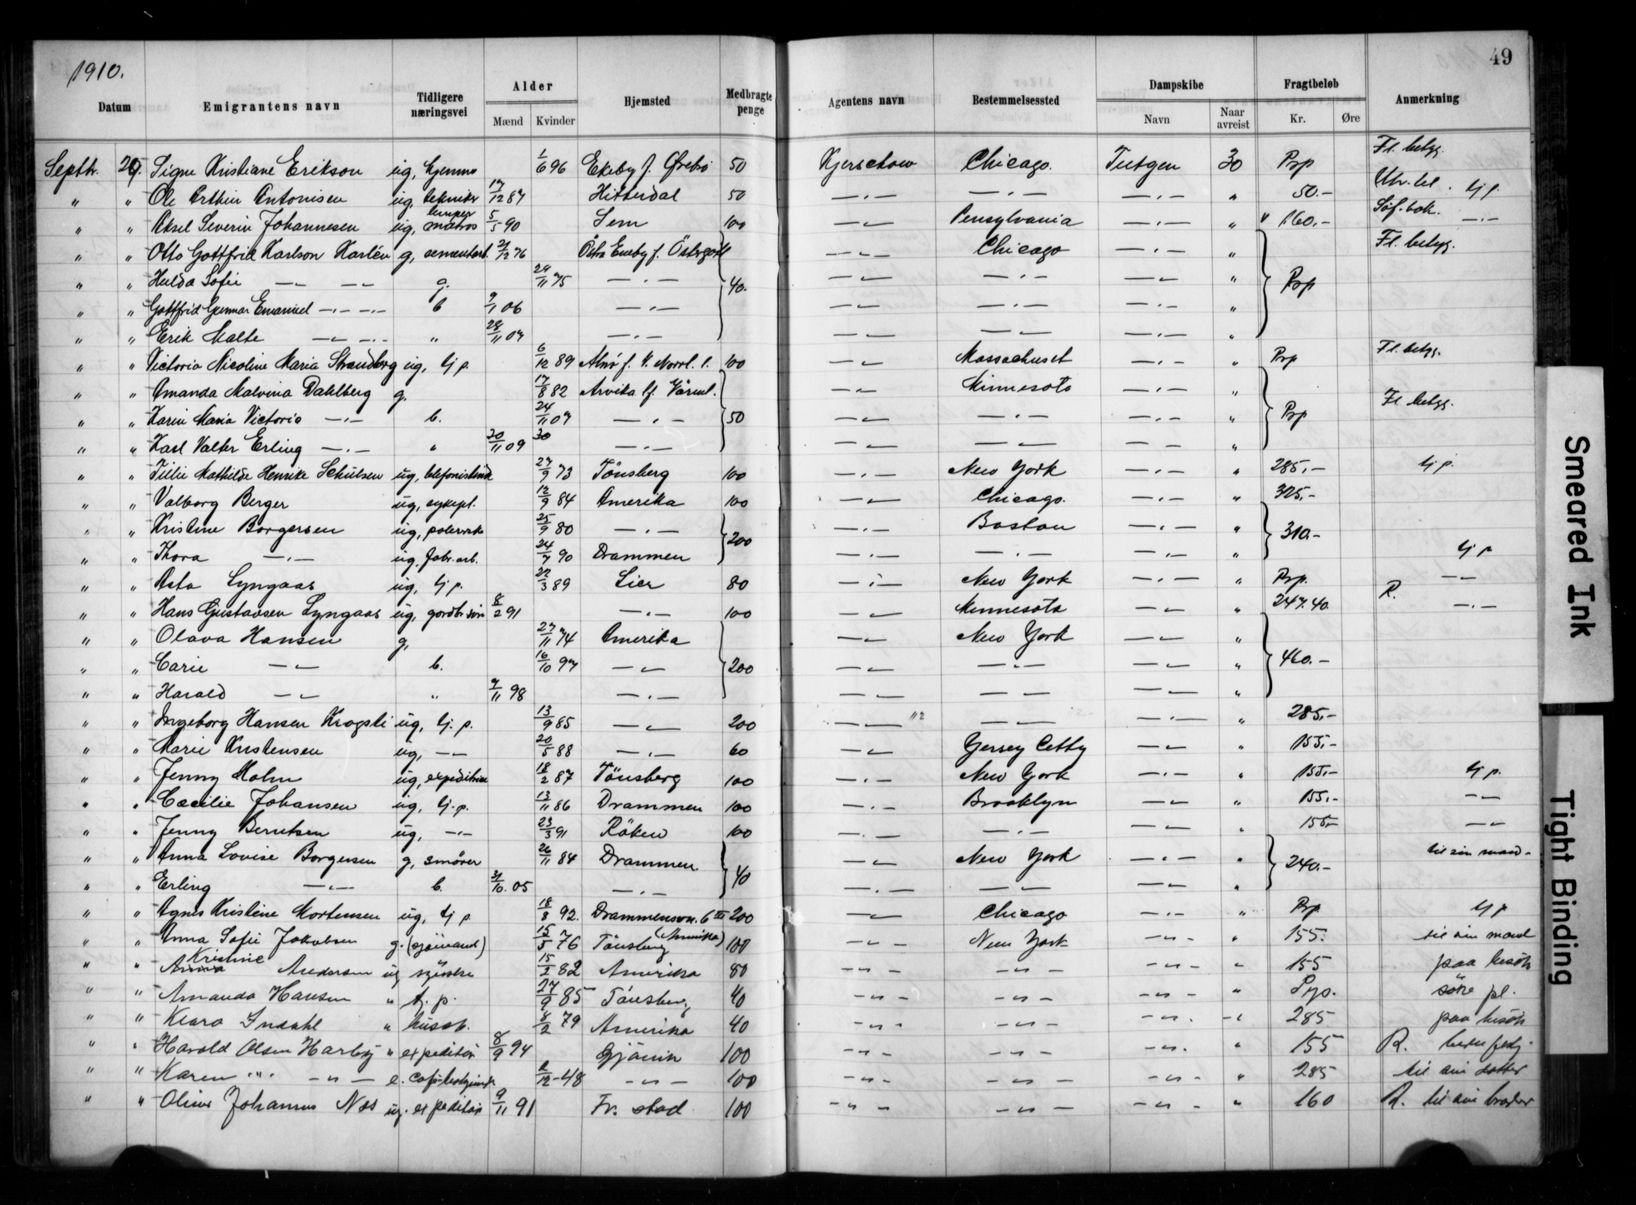 1910.
49
Datum Emigrantens navn Tidligere næringsvei Alder Mænd Kvinder Hjemsted Medbragte penge Agentens navn Bestemmelsessted Dampskibe Navn Naar avreist Fragtbeløb Kr. Øre Anmerkning
Septbr. 29. Signe Kristiane Erikson ug, hjemme 1/6 96 Ekeby f. Örebro 50 Kjerschow Chicago. Tietgen 30 Pop Fl. betyg.
" " Ole Arthur Antonisen ug. tekniker 17/12 87 Hitterdal 50 —"— —"— —"— " 50.- tj p.
" " Aksel Severin Johannesen ug, matros 5/5 90 Sem 100 —"— Pensylvania —"— " 160.- Söf. bok. —"—
" " Otto Gottfrid Karlson Karlén g, cementarb. 21/12 76 Östra Eneby f. Östergötl —"— Chicago —"— " Fl. betyg.
" " Hulda Sofie —"— —"— g. 24/11 75 —"— 40. —"— —"— —"— " Pop
" " Gottfrid Gunnar Emanuel —"— —"— b 9/1 06 —"— —"— —"— —"— "
" " Erik Malte —"— —"— " 28/11 07 —"— —"— —"— —"— "
" " Victoria Nicoline Maria Strandberg ug, tj p. 6/12 89 Alnö f. V. Norrl. l. 100 —"— Massachuset —"— " Pop Fl. betyg.
" " Amanda Malvina Dahlberg g. 17/8 82 Arvika lf. Värml. —"— Minnesota —"— "
" " Karin Maria Victoria —"— b. 24/11 07 —"— 50 —"— —"— —"— " Pop Fl. betyg.
" " Karl Valter Erling —"— " 30/11 09 30 —"— —"— —"— —"— "
" " Tillie Mathilde Henrike Schulsen ug, telefonistinde 27/9 73 Tönsberg 100 —"— New York —"— " 285,- tj p.
" " Valborg Berger ug, sykepl. 12/9 84 Amerika 100 —"— Chicago. —"— " 325,-
" " Kristine Borgersen ug, polererske 25/9 80 —"— 200 —"— Boston —"— " 310.-
" " Thora —"— ug. fabr. arb. 24/7 90 Drammen —"— —"— —"— " tj p
" " Asta Lyngaas ug, tj p. 22/3 89 Lier 80 —"— New York —"— " Pop. —"—
" " Hans Gustavsen Lyngaas ug, gaardbr. sön 8/2 91 —"— 100 —"— Minnesota —"— " 247.40 R. —"—
" " Olava Hansen g, 27/11 74 Amerika —"— New York —"— "
" " Carie —"— b. 16/10 97 —"— 200 —"— —"— —"— " 460.-
" " Harald —"— " 9/11 98 —"— —"— —"— —"— "
" " Ingeborg Hansen Krogsti ug, tj. p. 13/9 85 —"— 200 —"— —"— —"— " 285,-
" " Marie Kristensen ug, —"— 20/5 88 —"— 60 —"— Gersey Citty —"— " 155,-
" " Jenny Malm ug, expeditrice 18/2 87 Tönsberg 100 —"— New York —"— " 155,- tj p.
" " Cæcilie Johansen ug, tj. p. 13/11 86 Drammen 100 —"— Brooklyn —"— " 155,- —"—
" " Jenny Berntsen ug, —"— 23/3 91 Röken 100 —"— —"— —"— " 155- —"—
" " Anna Lovise Borgersen g, 26/11 84 Drammen —"— New York —"— " 240.- til sin mand-
" " Erling —"— b. 31/10. 05 —"— 40 —"— —"— —"— "
" " Agnes Kristine Mortensen ug, tj p 18/8 92. Drammensvn. 6 III 200 —"— Chicago —"— " Pop tj p
" " Anna Sofie Jakobsen g. (sjömand) 15/5 76 Tönsberg (Amerika) 100 —"— New York —"— " 155. til sin mand
" " Kristine Andersen ug syerske 15/2 82 Amerika 80 —"— —"— —"— " 155 paa besök
" " Amanda Hansen " tj. p. 27/9 85 Tönsberg 40 —"— —"— —"— " Pp. söke pl.
" " Klara Indahl " husst. 8/2 79 Amerika 40 —"— —"— —"— " 285 paa besök
" " Harald Olsen Harby " expeditör 8/9 94 Gjövik 100 —"— —"— —"— " 155 R.
" " Karen "" —"— e. 2/12-48 —"— 100 —"— —"— —"— " 285 til sin datter
" " Oliver Johannes Nas ug. expeditör 9/11 91 Fr. stad 100 —"— —"— —"— " 160 R. til sin broder
Smeared Ink
Tight Binding